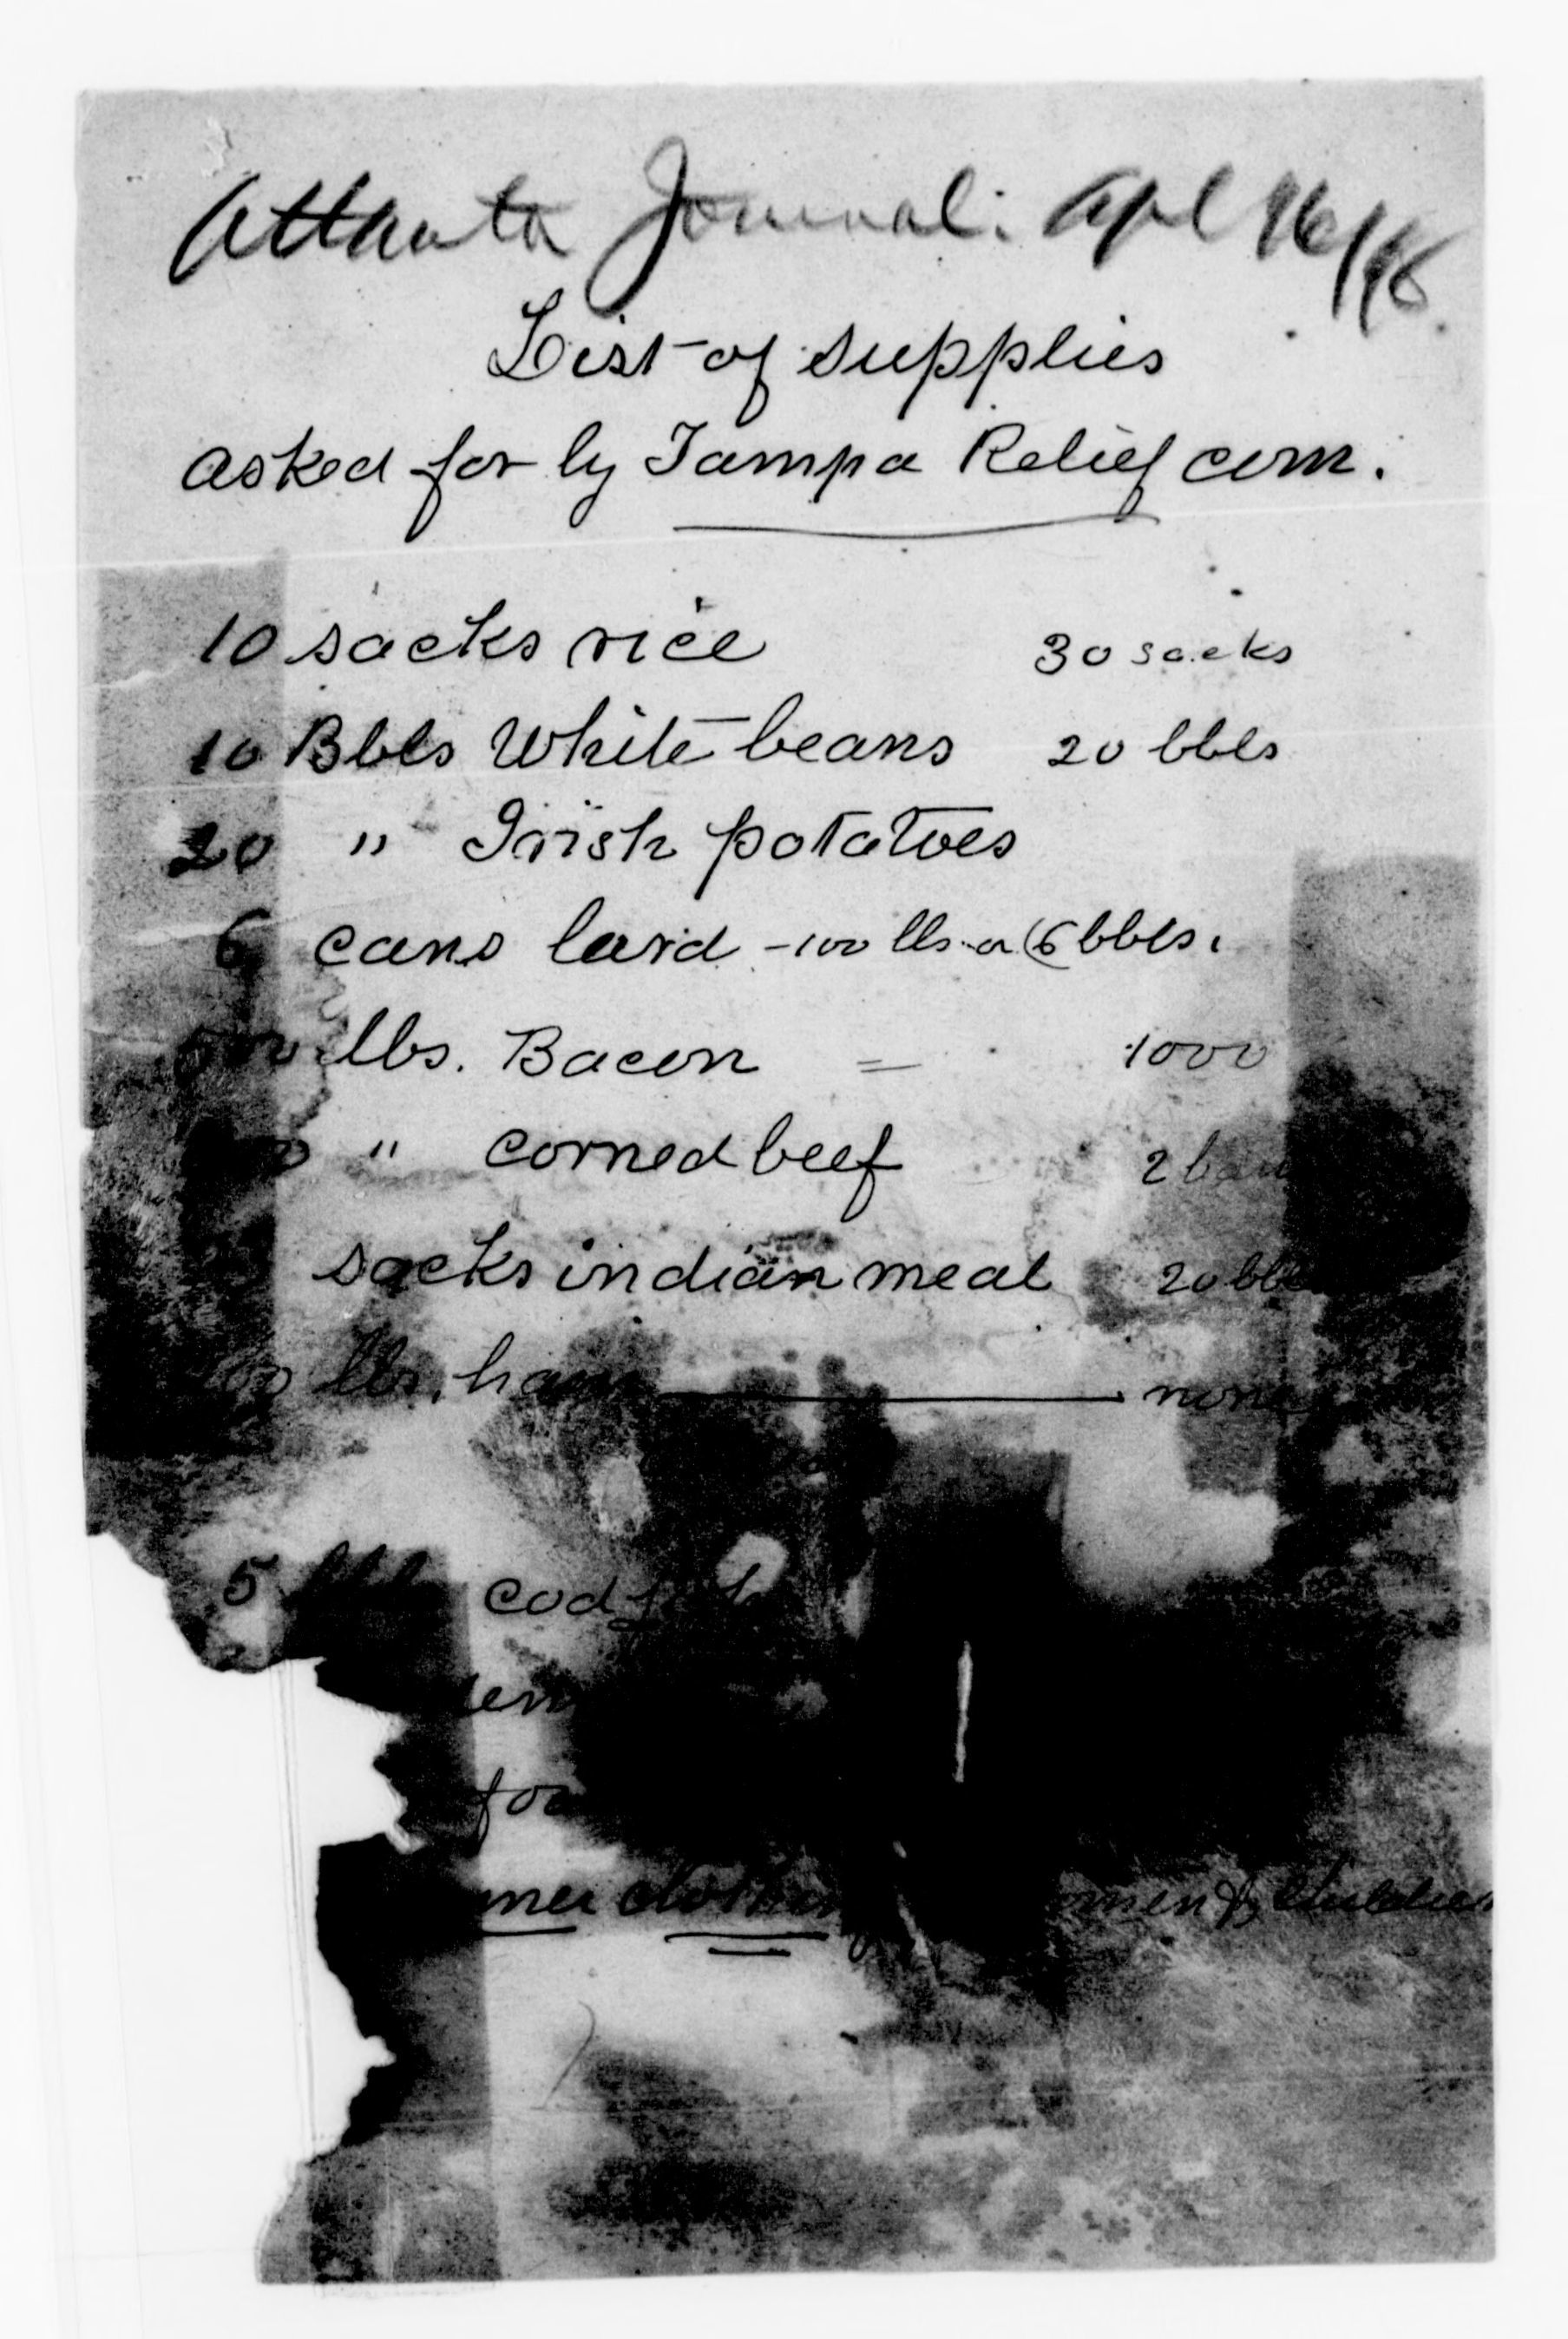 Atlanta Journal: Apl 16/98
List of supplies
asked for by Tampa Relief com.
10 sacks rice 30 sacks
10 Bbls White beans 20 bbls
20 " Irish potatoes
6 cans lard - 100 lbs. or 6 bbls.
500 lbs. Bacon = 1000
" corned beef 2
sacks indian meal 20 bbls
lbs. ham — none
5 codfish
clothes women & children